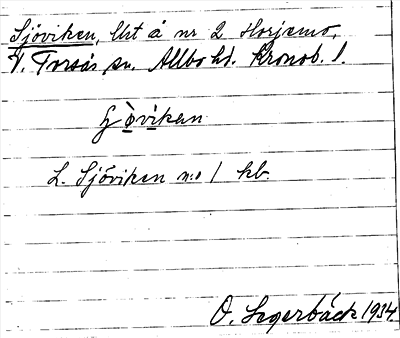 Sjöviken, lht å nr 2 Horjemo,
V. Torsås sn. Allbo hd. Kronob. l.
ʃòvikan
L. Sjöviken n:o 1 kb.
O. Segerbäck 1934.